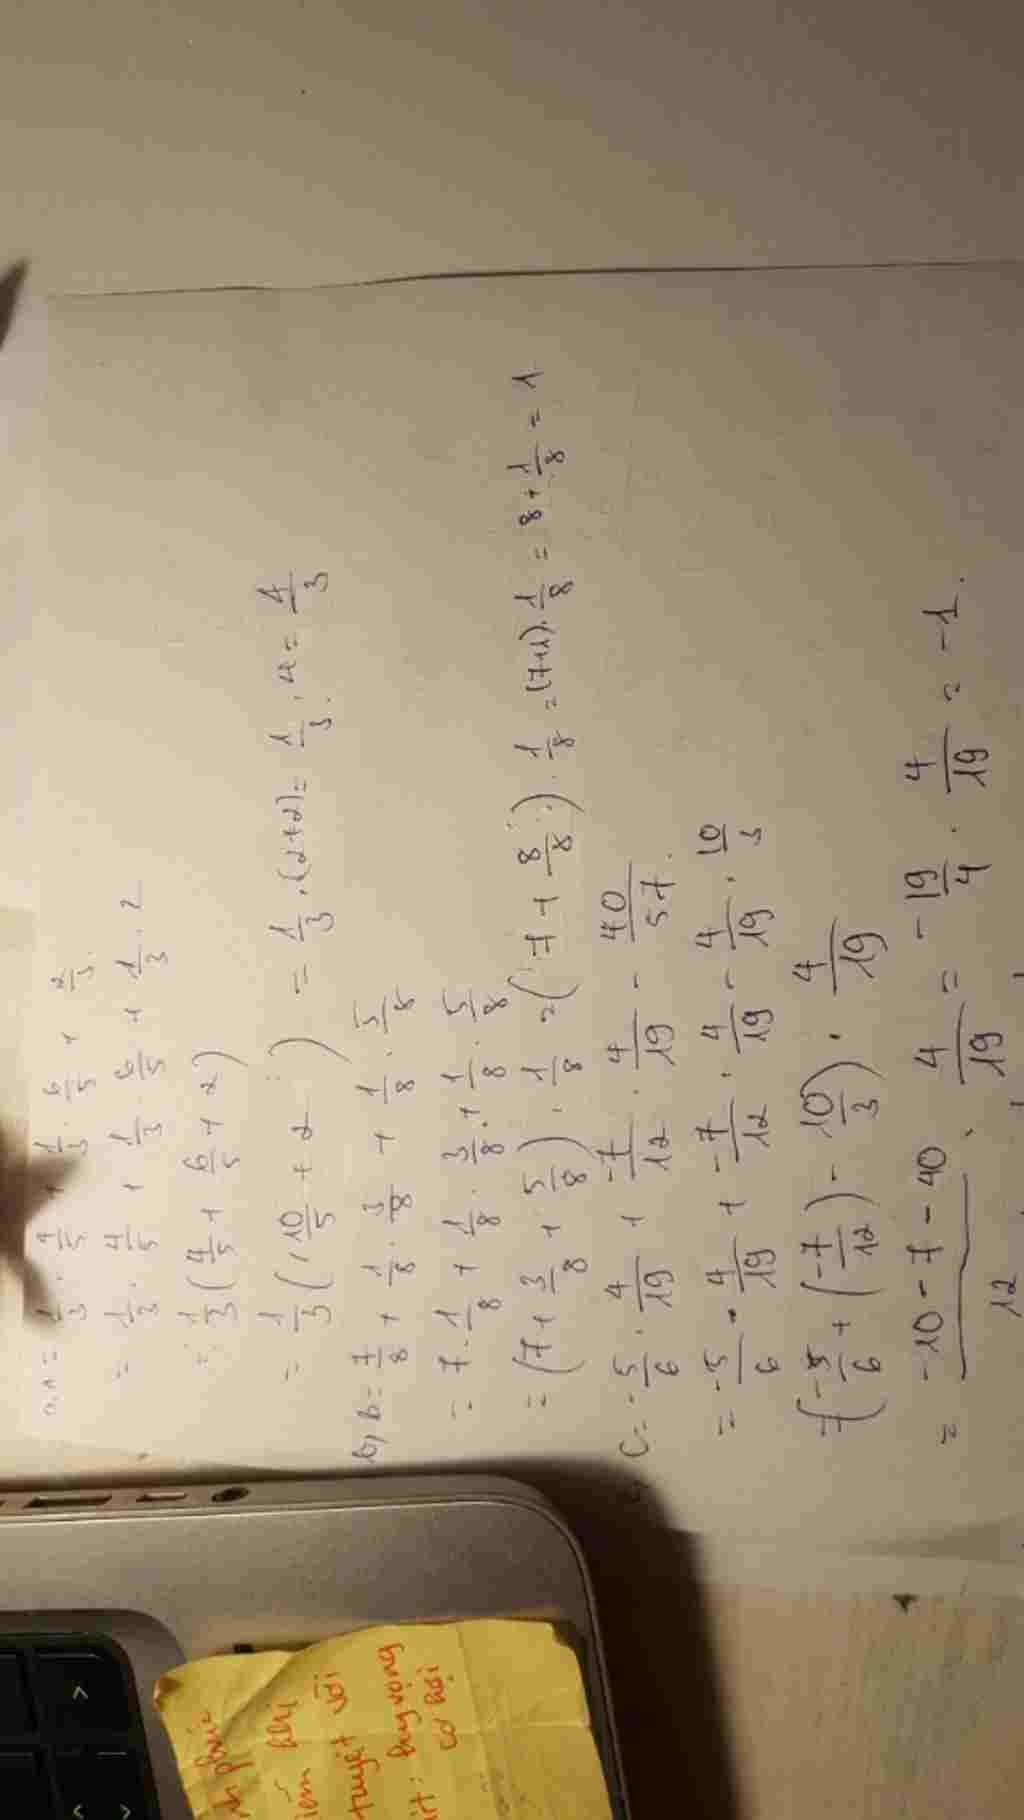 a, A = 1/3 . 4/5 + 1/3 . 6/5 + 2/3
= 1/3 . 4/5 + 1/3 . 6/5 + 1/3 . 2
= 1/3 (4/5 + 6/5 + 2)
= 1/3 (10/5 + 2) = 1/3 . (2+2) = 1/3 . 4 = 4/3
b, B = 7/8 + 1/8 . 3/8 + 1/8 . 5/8
= 7 . 1/8 + 1/8 . 3/8 + 1/8 . 5/8
= (7 + 3/8 + 5/8) . 1/8 = (7 + 8/8) . 1/8 = (7+1) . 1/8 = 8 + 1/8 = 1
C = -5/6 . 4/19 + -7/12 . 4/19 - 40/57 .
= -5/6 . 4/19 + -7/12 . 4/19 - 4/19 . 10/3
7 (-5/6 + (-7/12) - 10/3) . 4/19
= -10 - 7 - 40/12 . 4/19 = -19/4 . 4/19 = -1 .
khi
tuyệt vời
hy vọng
cơ hội